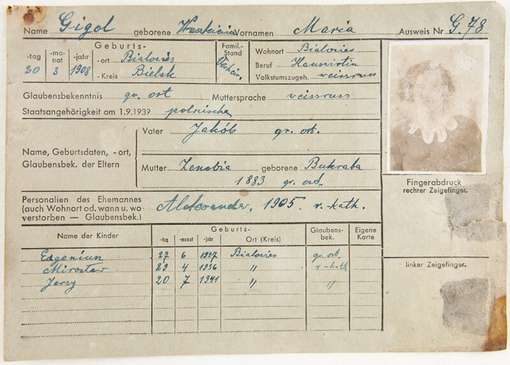 Name Gigol geborene Vornamen Maria Ausweis Nr. G.78
Geburts-
-tag -mo-nat -jahr -ort Bialowies -Kreis Bielsk
20 3 1908
Famil.-Stand
Wohnort Bialowies
Beruf
Volkstumszugeh. weissruss
Glaubensbekenntnis gr. ort Muttersprache weissruss
Staatsangehörigkeit am 1.9.1939 polnische
Name, Geburtsdaten, -ort,
Glaubensbek. der Eltern
Vater Jakób gr. ort.
Mutter Zenobia geborene Bukraba
1883 gr. ort.
Personalien des Ehemannes
(auch Wohnort od. wann u. wo
verstorben — Glaubensbek.)
Aleksander, 1905 r.-kath.
Fingerabdruck
rechter Zeigefinger.
linker Zeigefinger.
Name der Kinder -tag -monat -jahr Geburts- Ort (Kreis) Glaubens-bek. Eigene Karte
Eugeniusz 27 6 1927 Bialowies gr. ort.
Miroslaw 29 4 1936 " r-kath
Jerzy 20 7 1941 " "